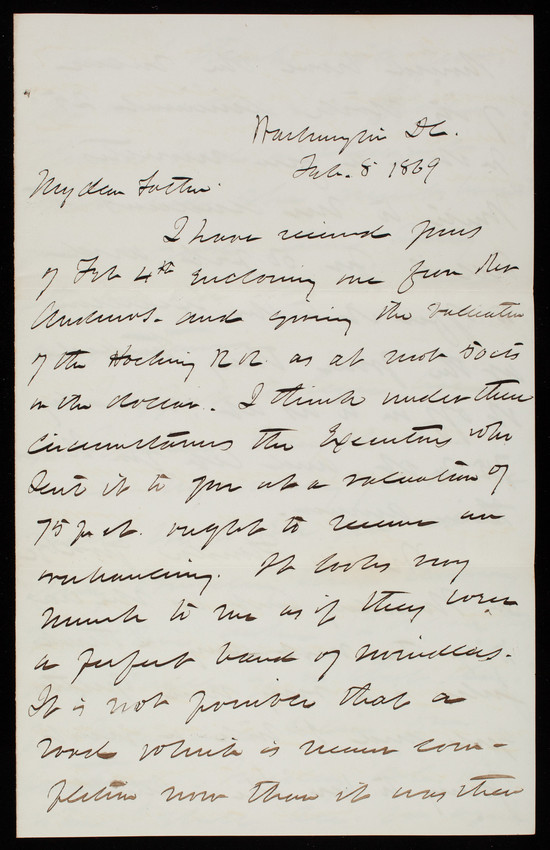 Washington DC.
Feb. 8 1869
My dear Father.
I have received yours
of Feb 4th enclosing one from Mr
Andrews. and giving the valuation
of the Hocking R R. as at most 50 cts
on the dollar. I think under these
circumstances the Executors who
sent it to you at a valuation of
75 pr ct. ought to receive an
overhauling. It looks very
much to me as if they were
a perfect band of swindlers.
It is not possible that a
road which is nearer com-
pletion now than it was then